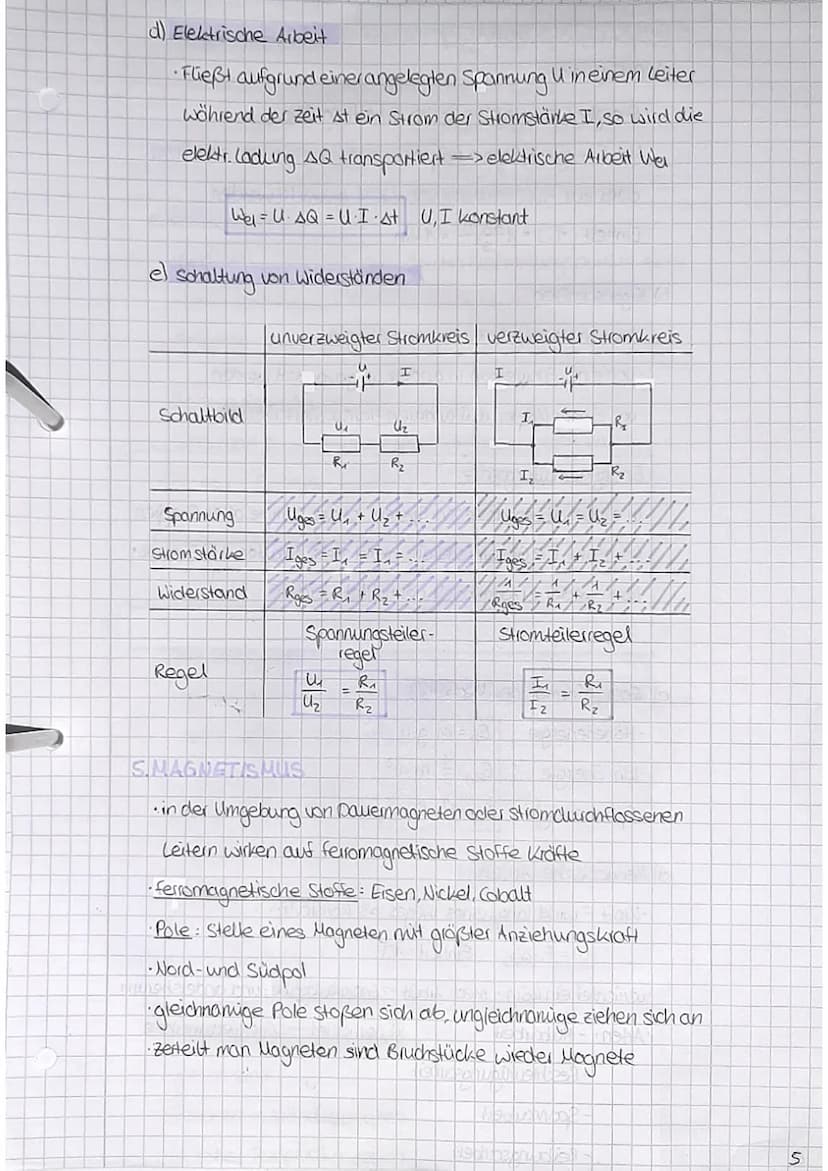 d) Elektrische Arbeit
· Fließt aufgrund einer angelegten Spannung U in einem Leiter
während der Zeit Δt ein Strom der Stromstärke I, so wird die
elektr. Ladung ΔQ transportiert => elektrische Arbeit Wel
Wel = U · ΔQ = U · I · Δt U, I konstant
e) Schaltung von Widerständen
unverzweigter Stromkreis verzweigter Stromkreis
Schaltbild
- U + I
U1 U2
R1 R2
I - U +
I1 R1
I2 R2
Spannung Uges = U1 + U2 + ... Uges = U1 = U2 = ...
Stromstärke Iges = I1 = I1 = ... Iges = I1 + I2 + ...
Widerstand Rges = R1 + R2 + ... 1/Rges = 1/R1 + 1/R2 + ...
Regel
Spannungsteiler-
regel
U1/U2 = R1/R2
Stromteilerregel
I1/I2 = R1/R2
5. MAGNETISMUS
· in der Umgebung von Dauermagneten oder stromdurchflossenen
Leitern wirken auf ferromagnetische Stoffe Kräfte
· ferromagnetische Stoffe: Eisen, Nickel, Cobalt
· Pole: Stelle eines Magneten mit größter Anziehungskraft
· Nord- und Südpol
· gleichnamige Pole stoßen sich ab, ungleichnamige ziehen sich an
· zerteilt man Magneten sind Bruchstücke wieder Magnete
5